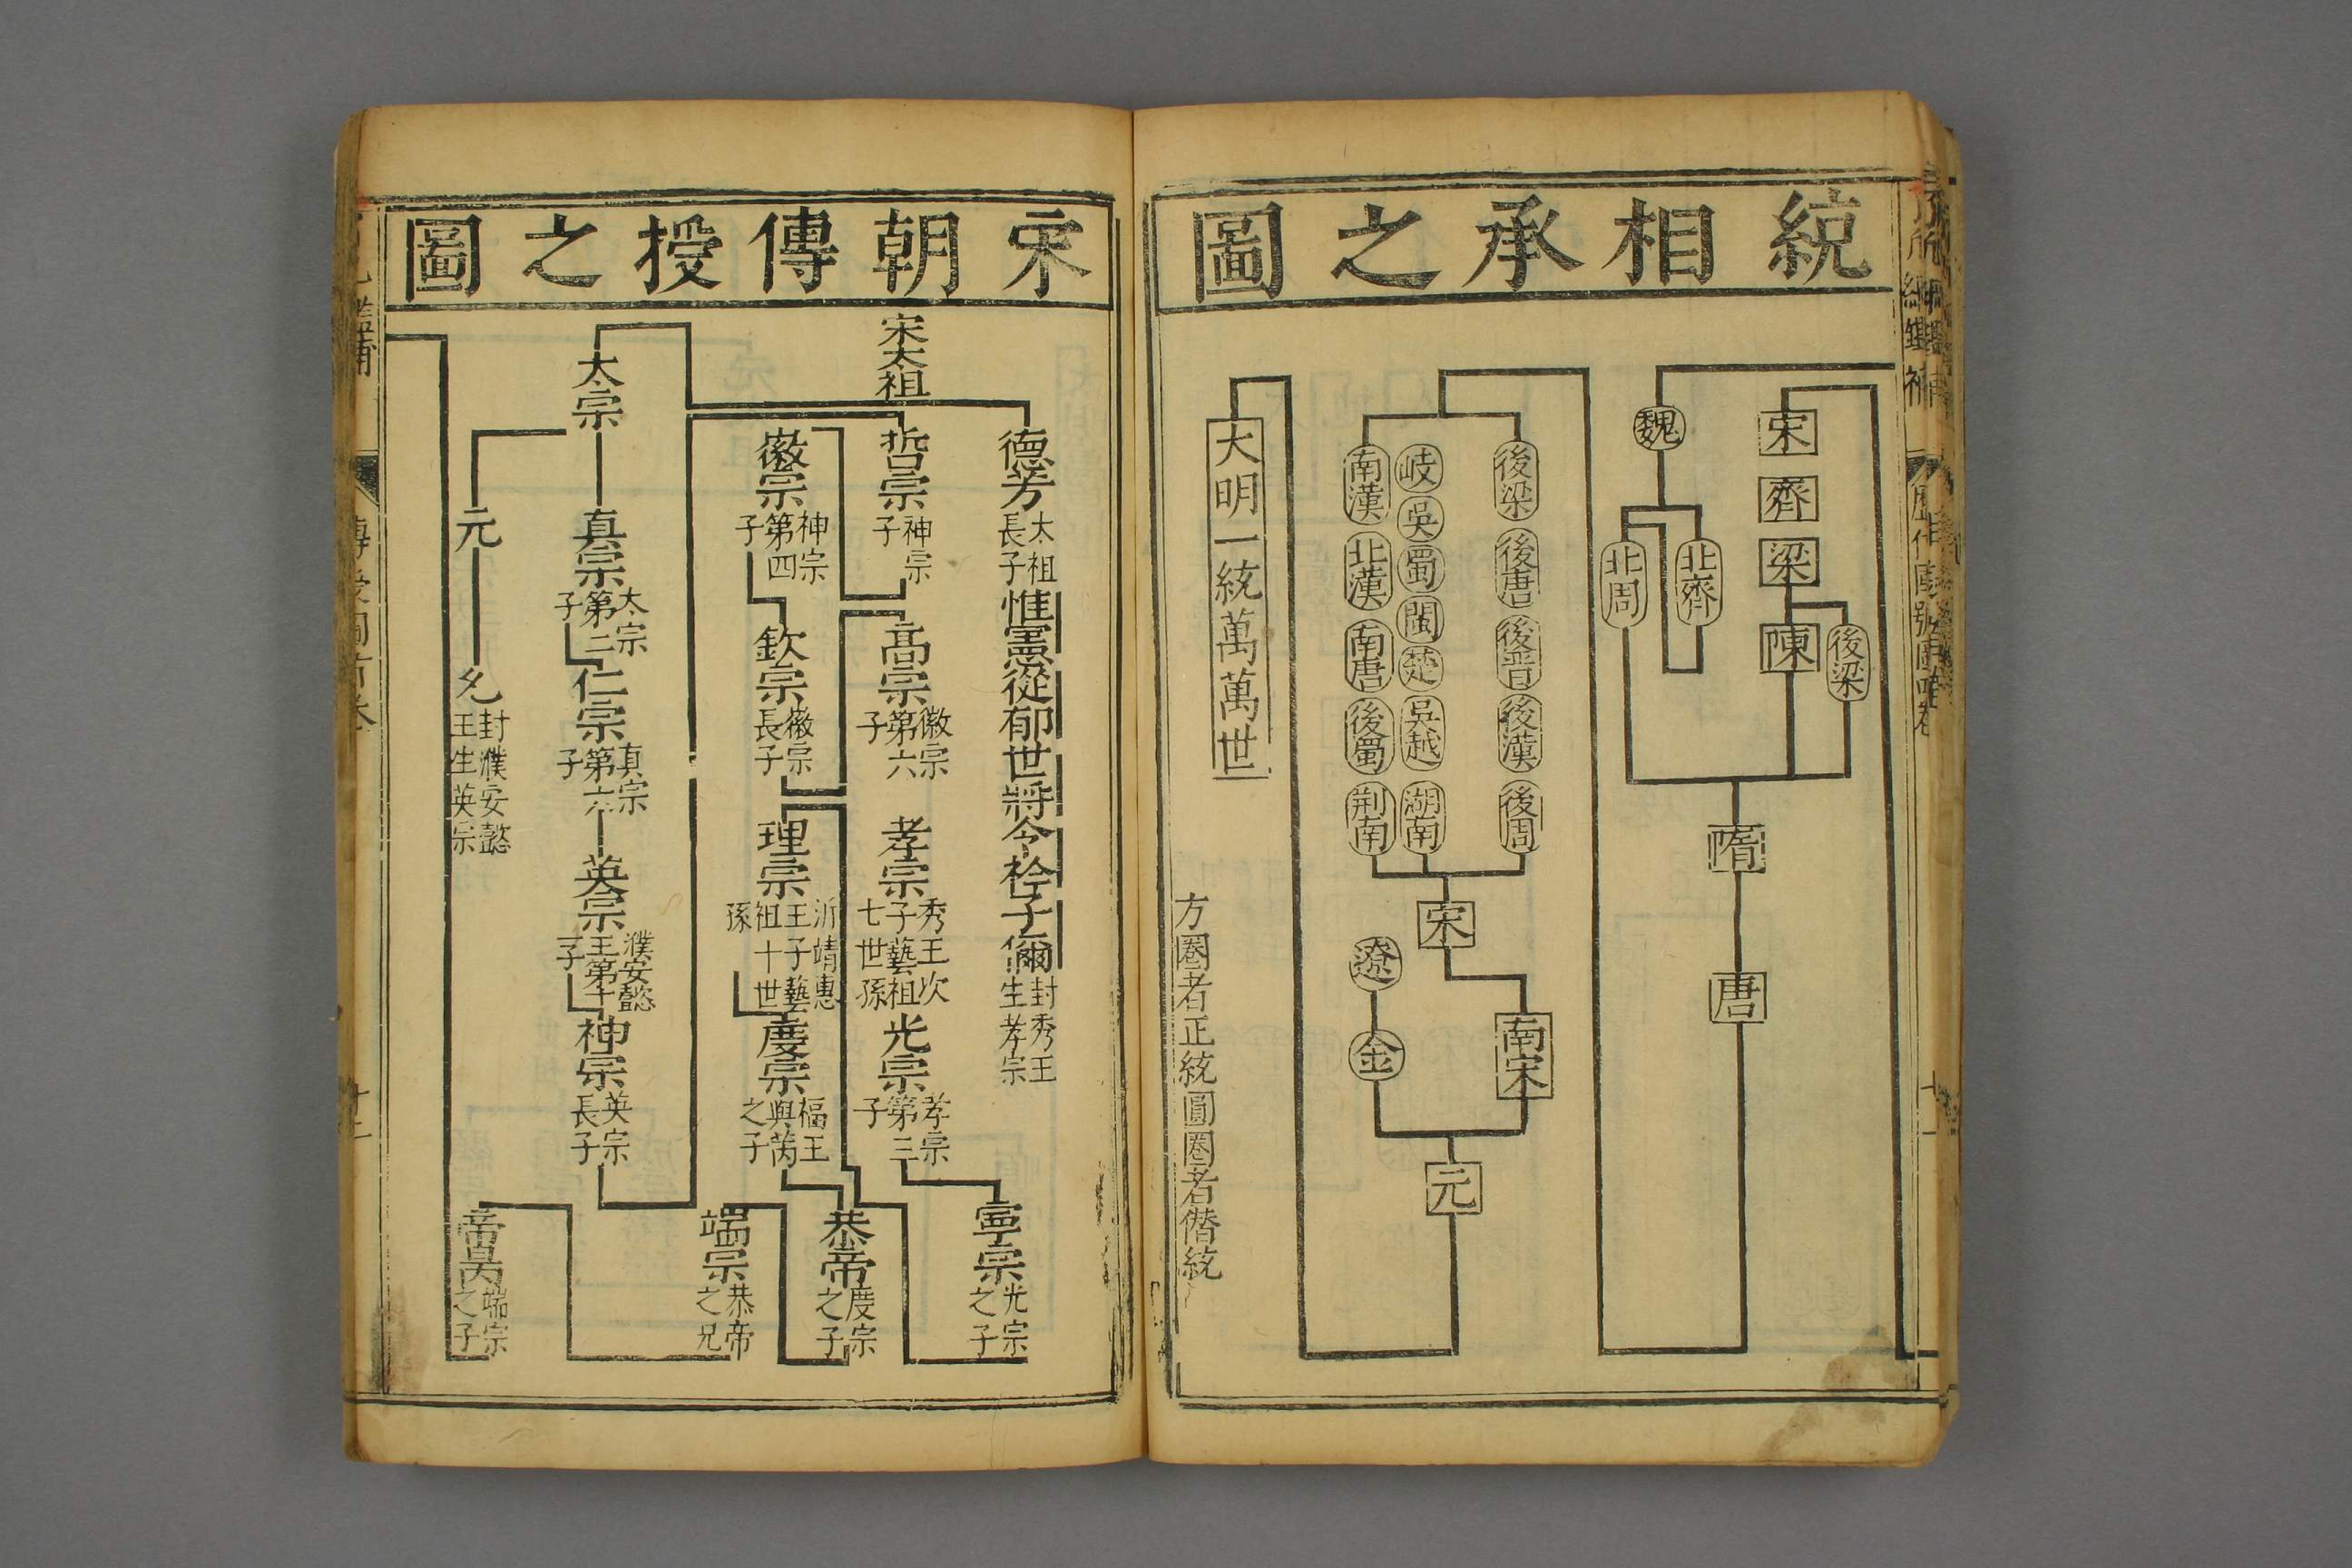 統相承之圖
宋
齊
梁
陳
後梁
魏
北齊
北周
隋
唐
後梁
後唐
後晉
後漢
後周
岐
吳
蜀
閩
楚
吳越
湖南
南漢
北漢
南唐
後蜀
荆南
宋
南宋
遼
金
元
大明一統萬萬世
方圈者正統圓圈者僭統
宋朝傳授之圖
宋太祖
德芳
太祖
長子
惟憲從郁世將令衿子偁
封秀王
生孝宗
哲宗
神宗
子
高宗
徽宗
第六
子
孝宗
秀王次
子藝祖
七世孫
光宗
孝宗
第三
子
寧宗
光宗
之子
徽宗
神宗
第四
子
欽宗
徽宗
長子
理宗
沂靖惠
王子藝
祖十世
孫
度宗
福王
與芮
之子
恭帝
度宗
之子
端宗
恭帝
之兄
太宗
真宗
太宗
第二
子
仁宗
真宗
第六
子
英宗
濮安懿
王第十
三子
神宗
英宗
長子
元
允
封濮安懿
王生英宗
帝昺
端宗
之子